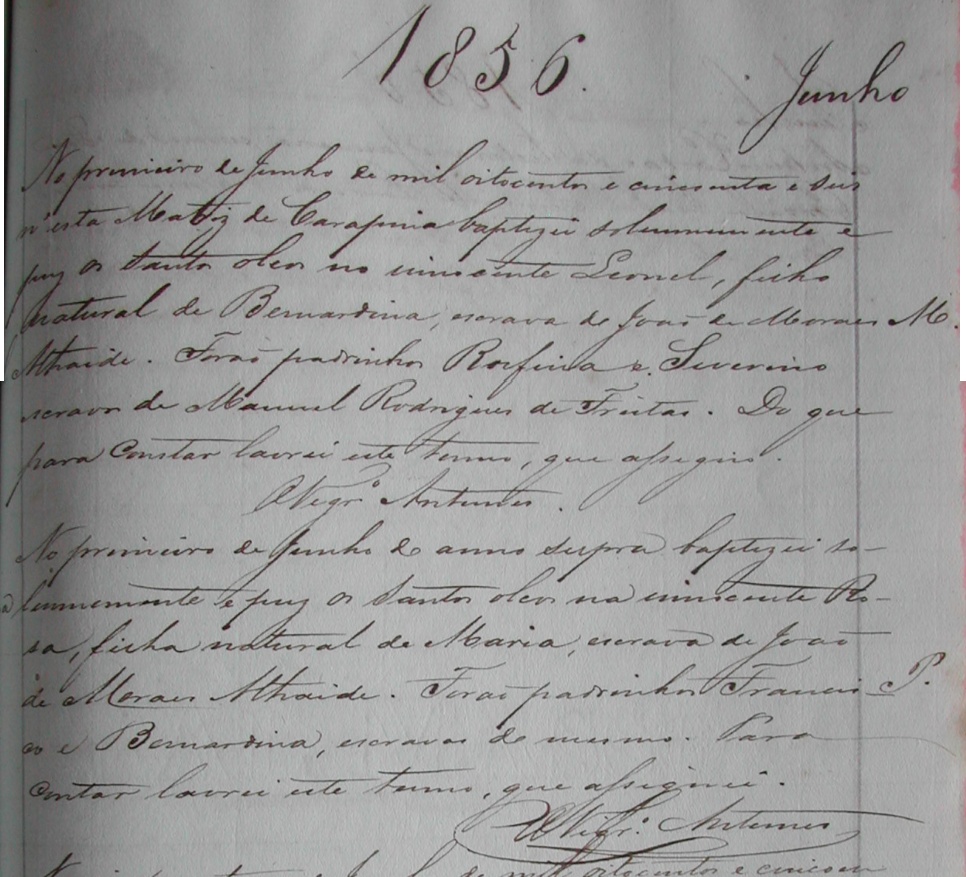 1856.
Junho
No primeiro de Junho de mil oitocentos e cincoenta e seis
n'esta Matriz de Carapina baptizei solemnemente e
puz os santos oleos no innocente Leonel, filho
natural de Bernardina, escrava de João de Moraes M.
Athaide. Forão padrinhos Rosfina e Severino
escravos de Manuel Rodrigues de Freitas. Do que
para constar lavrei este termo, que assigno.
O Vigr.º Antunes.
No primeiro de Junho do anno supra baptizei so-
lemnemente e puz os santos oleos na innocente Ro-
sa, filha natural de Maria, escrava de João
de Moraes Athaide. Forão padrinhos Francis- P.
co e Bernardina, escravos do mesmo. Para
constar lavrei este termo, que assignei.
O Vigr.º Antunes
de mil oitocentos e cincoen